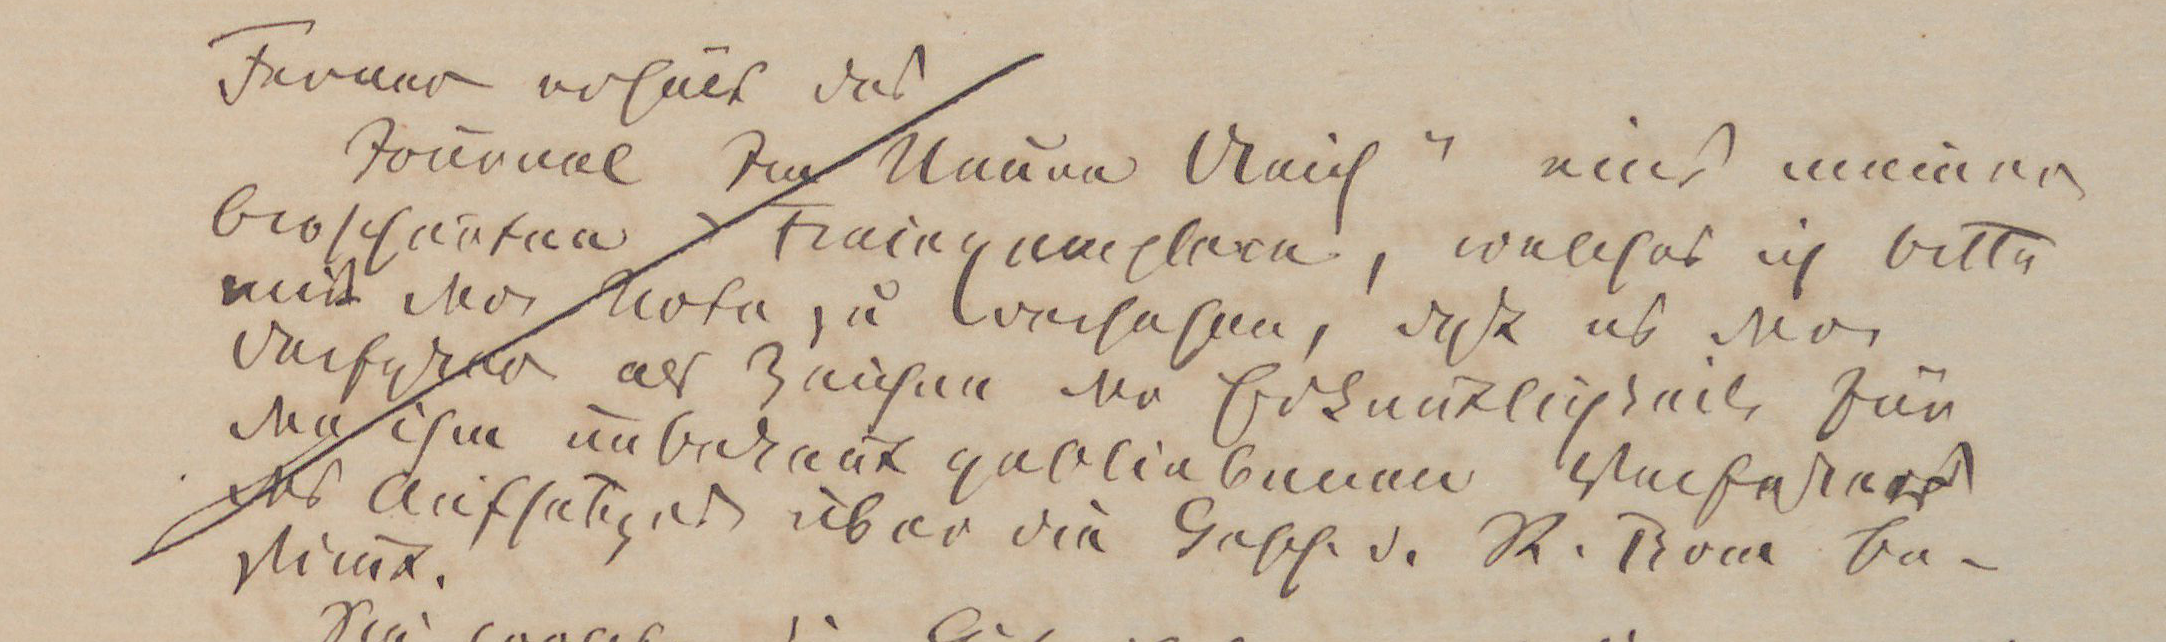 Ferner erhält das
Journal Im Neuen Reich" eins meiner
broschürten Freiexemplare, welches ich bitte
mit der Note zu versehen, daß es der
Verfaßer als Zeichen der Erkentlichkeit für
den ihm unbekant gebliebenen Verfaßer
des Aufsatzes über die Gesch. d. St. Rom be-
stimt.